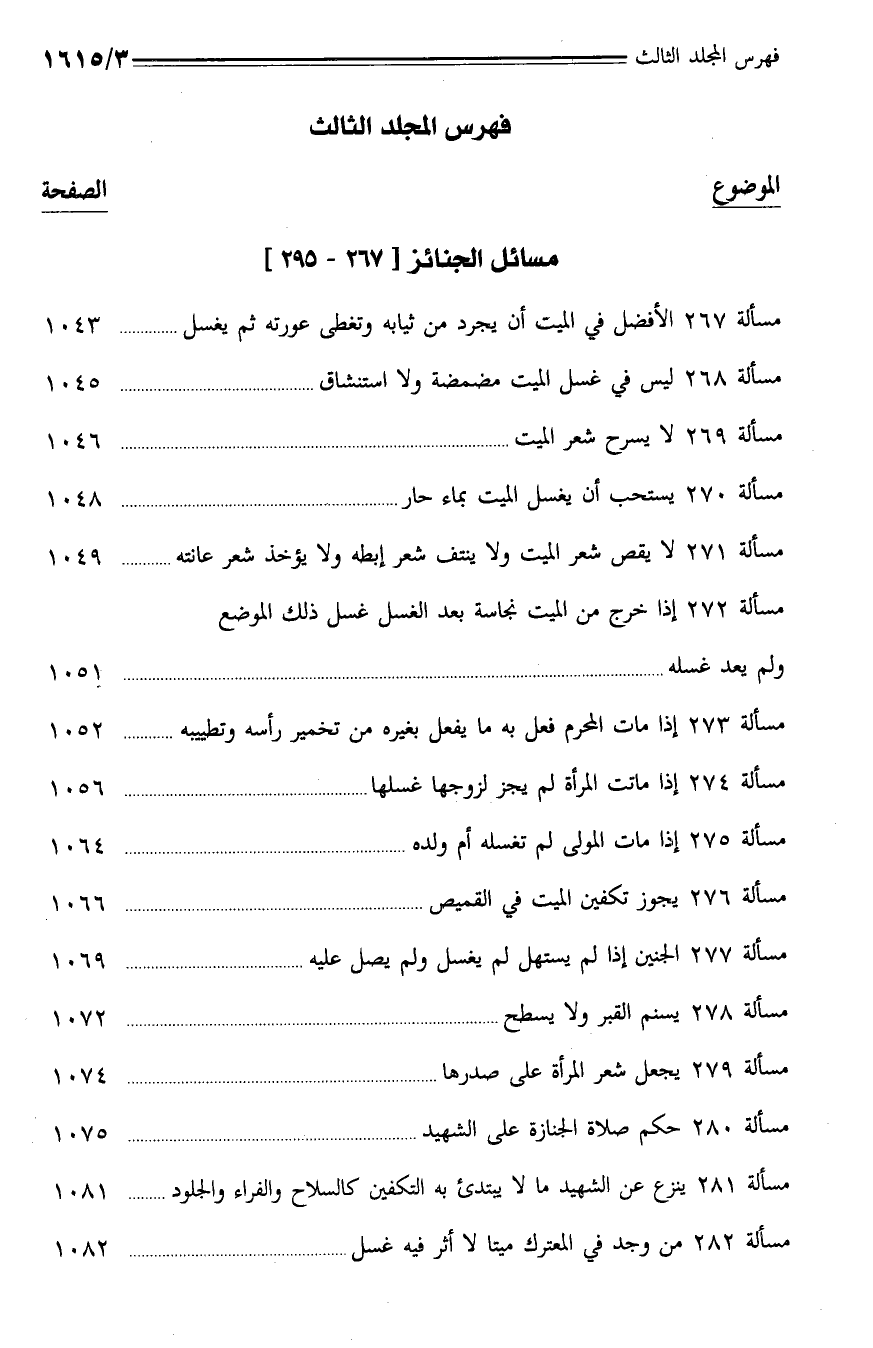 فهرس المجلد الثالث ١٦١٥/٣
فهرس المجلد الثالث
الموضوع الصفحة
مسائل الجنائز [ ٢٦٧ - ٢٩٥ ]
مسألة ٢٦٧ الأفضل في الميت أن يجرد من ثيابه وتغطى عورته ثم يغسل ............. ١٠٤٣
مسألة ٢٦٨ ليس في غسل الميت مضمضة ولا استنشاق ............. ١٠٤٥
مسألة ٢٦٩ لا يسرح شعر الميت ............. ١٠٤٦
مسألة ٢٧٠ يستحب أن يغسل الميت بماء حار ............. ١٠٤٨
مسألة ٢٧١ لا يقص شعر الميت ولا ينتف شعر إبطه ولا يؤخذ شعر عانته ............. ١٠٤٩
مسألة ٢٧٢ إذا خرج من الميت نجاسة بعد الغسل غسل ذلك الموضع
ولم يعد غسله ............. ١٠٥١
مسألة ٢٧٣ إذا مات المحرم فعل به ما يفعل بغيره من تخمير رأسه وتطييبه ............. ١٠٥٢
مسألة ٢٧٤ إذا ماتت المرأة لم يجز لزوجها غسلها ............. ١٠٥٦
مسألة ٢٧٥ إذا مات المولى لم تغسله أم ولده ............. ١٠٦٤
مسألة ٢٧٦ يجوز تكفين الميت في القميص ............. ١٠٦٦
مسألة ٢٧٧ الجنين إذا لم يستهل لم يغسل ولم يصل عليه ............. ١٠٦٩
مسألة ٢٧٨ يسنم القبر ولا يسطح ............. ١٠٧٢
مسألة ٢٧٩ يجعل شعر المرأة على صدرها ............. ١٠٧٤
مسألة ٢٨٠ حكم صلاة الجنازة على الشهيد ............. ١٠٧٥
مسألة ٢٨١ ينزع عن الشهيد ما لا يبتدئ به التكفين كالسلاح والفراء والجلود ............. ١٠٨١
مسألة ٢٨٢ من وجد في المعترك ميتا لا أثر فيه غسل ............. ١٠٨٢